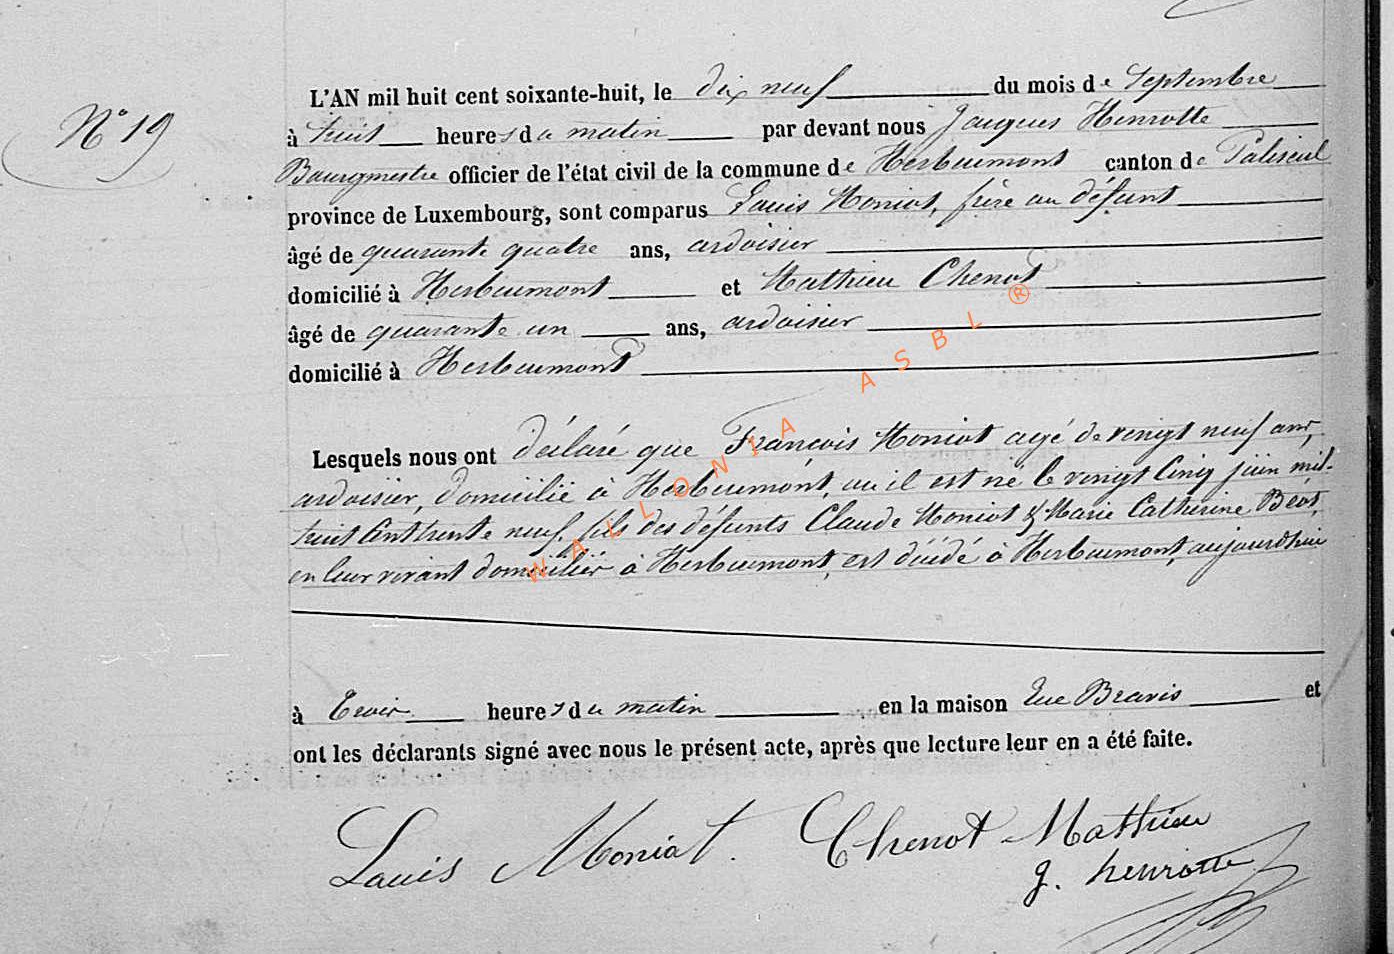 N° 19
L'AN mil huit cent soixante-huit, le dix neuf du mois de Septembre
à huit heures du matin par devant nous Jacques Henrotte
Bourgmestre officier de l'état civil de la commune de Herbeumont canton de Paliseul
province de Luxembourg, sont comparus Louis Moniot, frère au défunt
âgé de quarante quatre ans, ardoisier
domicilié à Herbeumont et Mathieu Chenot
âgé de quarante un ans, ardoisier
domicilié à Herbeumont
Lesquels nous ont déclaré que François Moniot agé de vingt neuf ans,
ardoisier, domicilié à Herbeumont, ou il est né le vingt cinq juin mil-
huit cent trente neuf, fils des défunts Claude Moniot & Marie Catherine
en leur vivant domiciliés à Herbeumont, est décédé à Herbeumont, aujourd'hui
à trois heures du matin en la maison Rue et
ont les déclarants signé avec nous le présent acte, après que lecture leur en a été faite.
Louis Moniot. Chenot Mathieu
J. henrotte
WALLONIA ASBL ®